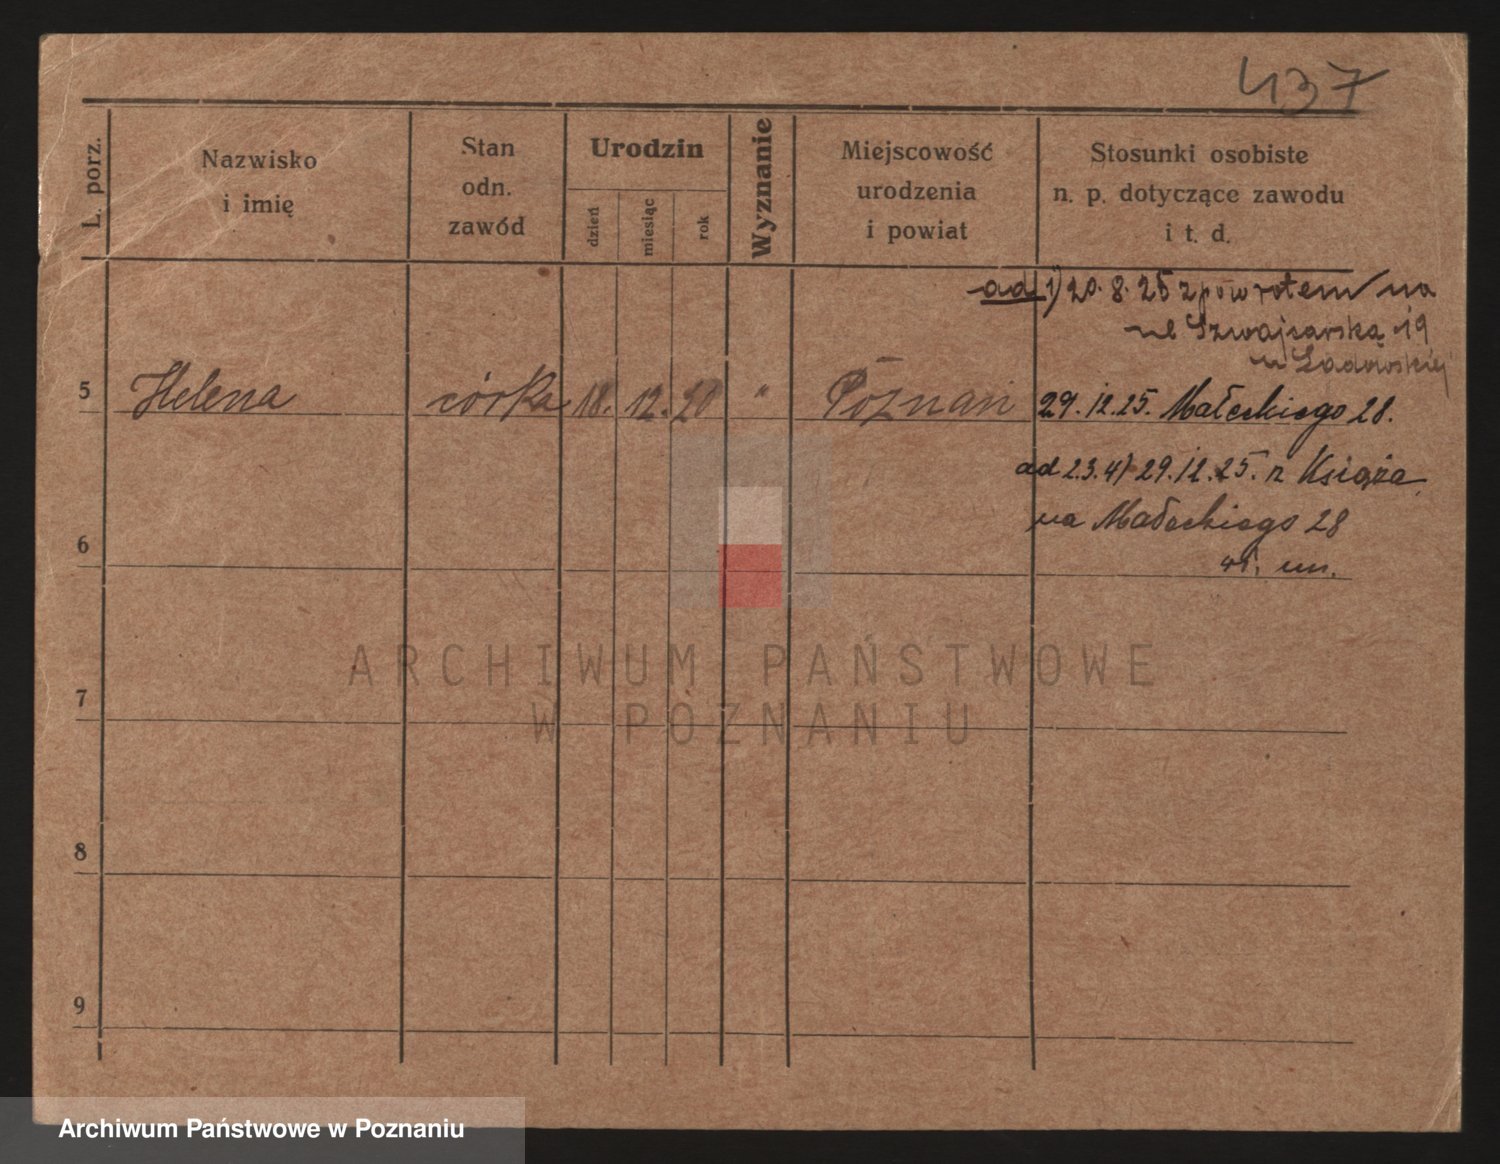 437
L. porz.
Nazwisko
i imię
Stan
odn.
zawód
Urodzin
dzień
miesiąc
rok
Wyznanie
Miejscowość
urodzenia
i powiat
Stosunki osobiste
n. p. dotyczące zawodu
i t. d.
ad 1) 20. 8. 25 z powrotem na
ul Szwajcarską 19
u
5 Helena córka 18. 12. 20 " Poznań 29. 12. 25. Małeckiego 28.
ad 2.3.4) 29. 12. 25. z Książa
na Małeckiego 28
6
7
8
9
ARCHIWUM PAŃSTWOWE
W POZNANIU
Archiwum Państwowe w Poznaniu